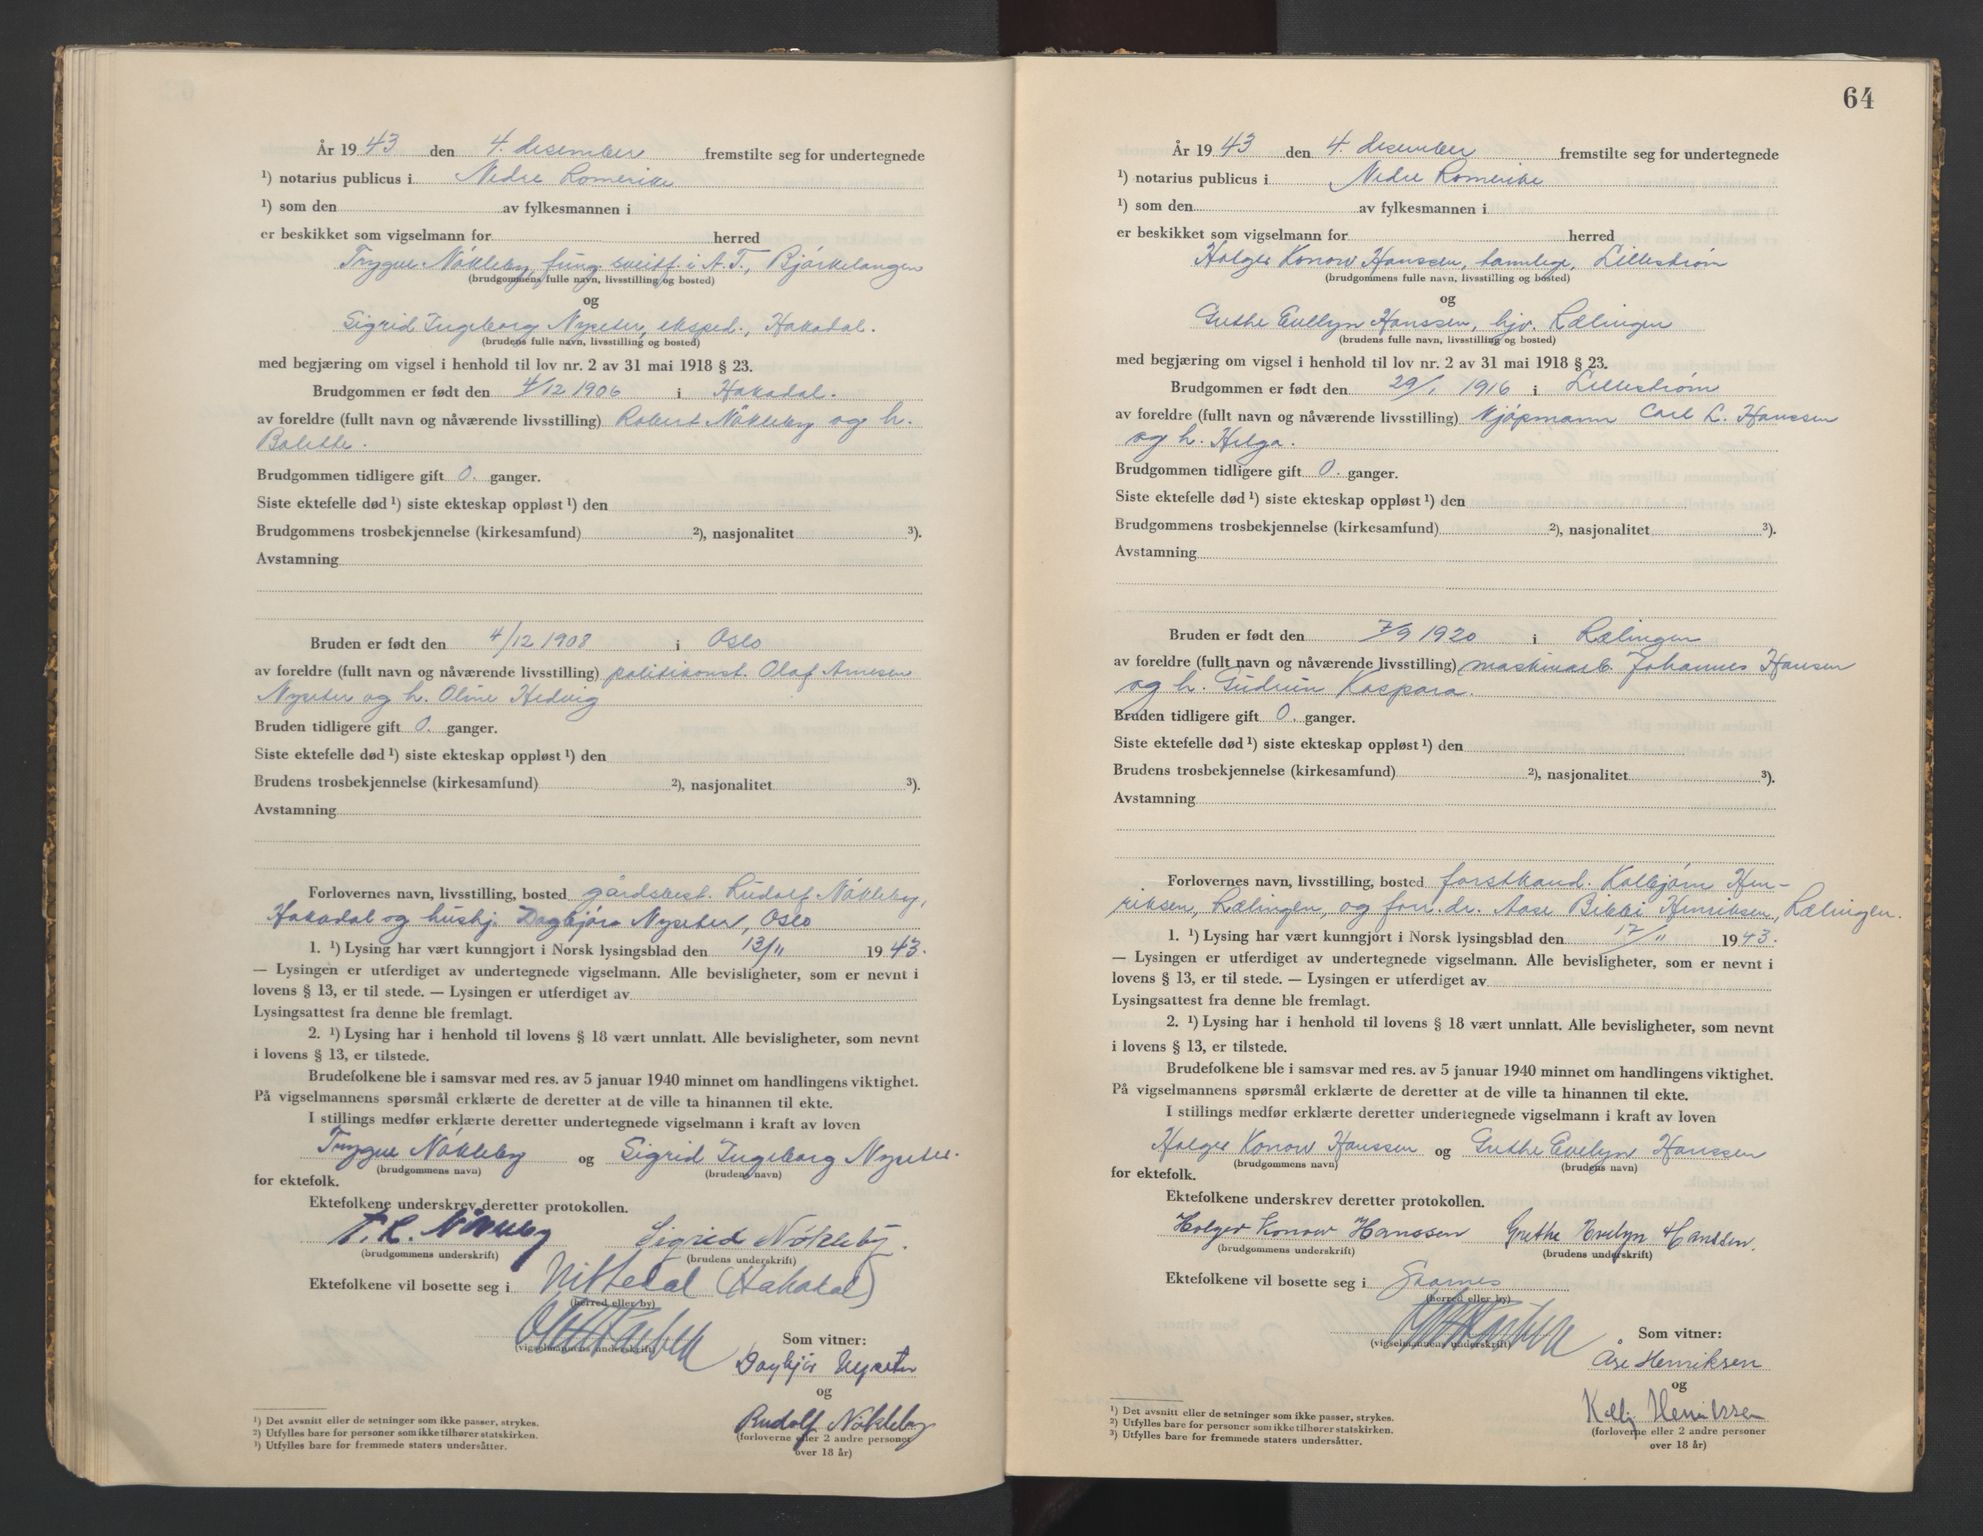 År 1943 den 4. desember fremstilte seg for undertegnede
¹) notarius publicus i Nedre Romerike
¹) som den av fylkesmannen i
er beskikket som vigselmann for herred
Trygve Nökleby, fung. sveitf. i A.T., Björkelangen
(brudgommens fulle navn, livsstilling og bosted)
og
Sigrid Ingeborg Nyseter, eksped., Hakadal.
(brudens fulle navn, livsstilling og bosted)
med begjæring om vigsel i henhold til lov nr. 2 av 31 mai 1918 § 23.
Brudgommen er født den 4/12 1906 i Hakadal.
av foreldre (fullt navn og nåværende livsstilling) Robert Nökleby og h.
Bolette.
Brudgommen tidligere gift 0. ganger.
Siste ektefelle død ¹) siste ekteskap oppløst ¹) den
Brudgommens trosbekjennelse (kirkesamfund) ²), nasjonalitet ³).
Avstamning
Bruden er født den 4/12 1908 i Oslo
av foreldre (fullt navn og nåværende livsstilling) politikonst. Olaf Arnesen
Nyseter og h. Oline Hedvig
Bruden tidligere gift 0. ganger.
Siste ektefelle død ¹) siste ekteskap oppløst ¹) den
Brudens trosbekjennelse (kirkesamfund) ²), nasjonalitet ³).
Avstamning
Forlovernes navn, livsstilling, bosted gårdsbest. Rudolf Nökleby,
Hakadal og hushj. Dagbjörg Nyseter, Oslo
1. ¹) Lysing har vært kunngjort i Norsk lysingsblad den 13/11 1943.
— Lysingen er utferdiget av undertegnede vigselmann. Alle bevisligheter, som er nevnt i
lovens § 13, er til stede. — Lysingen er utferdiget av
Lysingsattest fra denne ble fremlagt.
2. ¹) Lysing har i henhold til lovens § 18 vært unnlatt. Alle bevisligheter, som nevnt
i lovens § 13, er tilstede.
Brudefolkene ble i samsvar med res. av 5 januar 1940 minnet om handlingens viktighet.
På vigselmannens spørsmål erklærte de deretter at de ville ta hinannen til ekte.
I stillings medfør erklærte deretter undertegnede vigselmann i kraft av loven
Trygve Nökleby og Sigrid Ingeborg Nyseter.
(brudgommens navn) (brudens navn)
for ektefolk.
Ektefolkene underskrev deretter protokollen.
T. R. Nökleby Sigrid Nökleby.
(brudgommens underskrift) (brudens underskrift)
Ektefolkene vil bosette seg i Nittedal (Hakadal)
(herred eller by)
(vigselmannens underskrift)
Som vitner:
Dagbjör Nyseter
og
Rudolf Nökleby
(forloverne eller 2 andre personer
over 18 år)
¹) Det avsnitt eller de setninger som ikke passer, strykes.
²) Utfylles bare for personer som ikke tilhører statskirken.
³) Utfylles bare for fremmede staters undersåtter.
64
År 1943 den 4. desember fremstilte seg for undertegnede
¹) notarius publicus i Nedre Romerike
¹) som den av fylkesmannen i
er beskikket som vigselmann for herred
Holger Konow Hanssen, tannlege, Lillestrøm
(brudgommens fulle navn, livsstilling og bosted)
og
Grethe Evelyn Hanssen, hjv. Rælingen
(brudens fulle navn, livsstilling og bosted)
med begjæring om vigsel i henhold til lov nr. 2 av 31 mai 1918 § 23.
Brudgommen er født den 29/1 1916 i Lillestrøm
av foreldre (fullt navn og nåværende livsstilling) kjöpmann Carl L. Hanssen
og h. Helga.
Brudgommen tidligere gift 0. ganger.
Siste ektefelle død ¹) siste ekteskap oppløst ¹) den
Brudgommens trosbekjennelse (kirkesamfund) ²), nasjonalitet ³).
Avstamning
Bruden er født den 7/9 1920 i Rælingen
av foreldre (fullt navn og nåværende livsstilling) maskinarb. Johannes Hansen
og h. Gudrun Kaspara.
Bruden tidligere gift 0. ganger.
Siste ektefelle død ¹) siste ekteskap oppløst ¹) den
Brudens trosbekjennelse (kirkesamfund) ²), nasjonalitet ³).
Avstamning
Forlovernes navn, livsstilling, bosted forstkand. Kolbjörn Hen-
riksen, Rælingen, og forr.dr. Aase Bikki Henriksen, Rælingen.
1. ¹) Lysing har vært kunngjort i Norsk lysingsblad den 17/11 1943.
— Lysingen er utferdiget av undertegnede vigselmann. Alle bevisligheter, som er nevnt i
lovens § 13, er til stede. — Lysingen er utferdiget av
Lysingsattest fra denne ble fremlagt.
2. ¹) Lysing har i henhold til lovens § 18 vært unnlatt. Alle bevisligheter, som nevnt
i lovens § 13, er tilstede.
Brudefolkene ble i samsvar med res. av 5 januar 1940 minnet om handlingens viktighet.
På vigselmannens spørsmål erklærte de deretter at de ville ta hinannen til ekte.
I stillings medfør erklærte deretter undertegnede vigselmann i kraft av loven
Holger Konow Hanssen og Grethe Evelyn Hanssen
(brudgommens navn) (brudens navn)
for ektefolk.
Ektefolkene underskrev deretter protokollen.
Holger Konow Hanssen Grethe Evelyn Hanssen.
(brudgommens underskrift) (brudens underskrift)
Ektefolkene vil bosette seg i Skarnes
(herred eller by)
(vigselmannens underskrift)
Som vitner:
Åse Henriksen
og
Kolbj Henriksen
(forloverne eller 2 andre personer
over 18 år)
¹) Det avsnitt eller de setninger som ikke passer, strykes.
²) Utfylles bare for personer som ikke tilhører statskirken.
³) Utfylles bare for fremmede staters undersåtter.